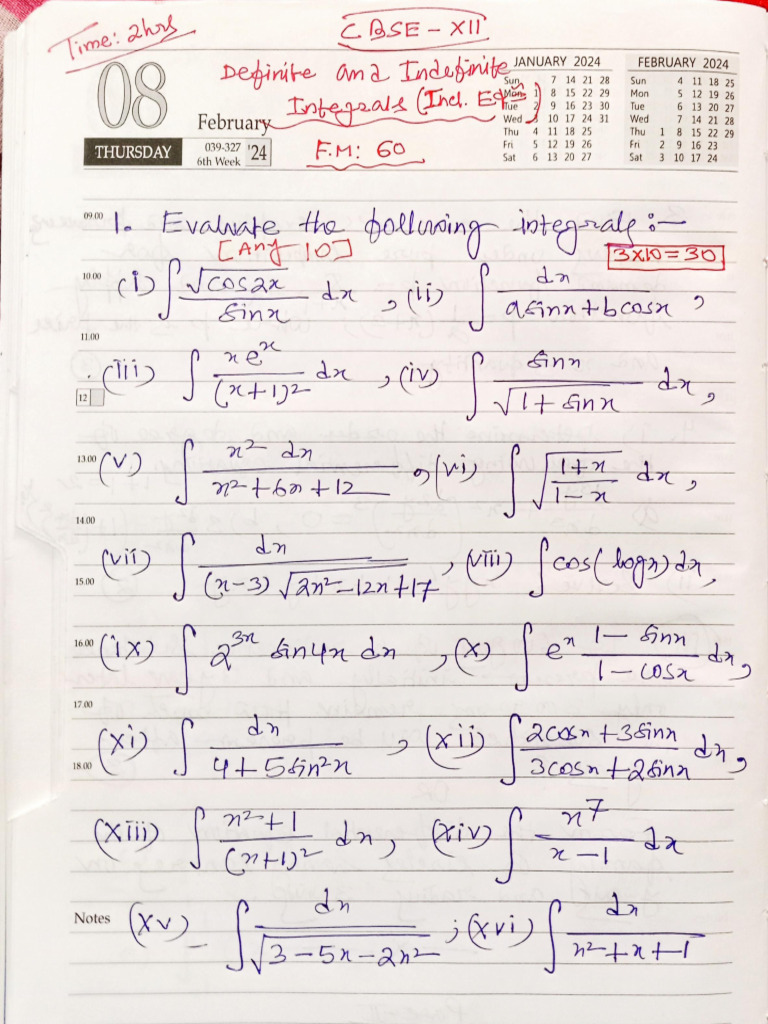 Time: 2hrs
CBSE - XII
08
THURSDAY
February
039-327
6th Week
'24
Definite and Indefinite
Integrals (Incl. Eqns)
F.M: 60
JANUARY 2024
Sun 7 14 21 28
Mon 1 8 15 22 29
Tue 2 9 16 23 30
Wed 3 10 17 24 31
Thu 4 11 18 25
Fri 5 12 19 26
Sat 6 13 20 27
FEBRUARY 2024
Sun 4 11 18 25
Mon 5 12 19 26
Tue 6 13 20 27
Wed 7 14 21 28
Thu 1 8 15 22 29
Fri 2 9 16 23
Sat 3 10 17 24
09.00 1. Evaluate the following integrals :—
[Any 10] 3x10=30
10.00 (i) ∫ √cos2x / sinx dx , (ii) ∫ dx / (asinx + bcosx) ,
11.00
12 (iii) ∫ xe^x / (x+1)² dx , (iv) ∫ sinx / √(1 + sinx) dx ,
13.00 (v) ∫ x² dx / (x² + 6x + 12) , (vi) ∫ √((1+x) / (1-x)) dx ,
14.00
15.00 (vii) ∫ dx / ((x-3) √(2x² - 12x + 17)) , (viii) ∫ cos(logx) dx ,
16.00 (ix) ∫ 2^(3x) sin4x dx , (x) ∫ e^x (1 - sinx) / (1 - cosx) dx ,
17.00
18.00 (xi) ∫ dx / (4 + 5sin²x) , (xii) ∫ (2cosx + 3sinx) / (3cosx + 2sinx) dx ,
(xiii) ∫ (x² + 1) / (x+1)² dx , (xiv) ∫ x⁷ / (x - 1) dx
Notes (xv) ∫ dx / √(3 - 5x - 2x²) ; (xvi) ∫ dx / (x² + x + 1)